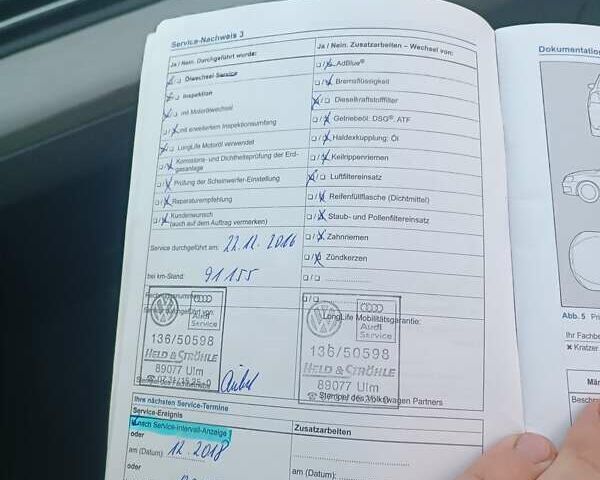 Service-Nachweis 3
Ja / Nein: Durchgeführt wurde:
Ölwechsel-Service
Inspektion
mit Motorölwechsel
mit erweitertem Inspektionsumfang
LongLife Motoröl verwendet
Korrosions- und Dichtheitsprüfung der Erd-
gasanlage
Prüfung der Scheinwerfer-Einstellung
Reparaturempfehlung
Kundenwunsch
(auch auf dem Auftrag vermerken)
Service durchgeführt am: 22.12.2016
bei km-Stand: 91155
Ja / Nein: Zusatzarbeiten – Wechsel von:
AdBlue®
Bremsflüssigkeit
Dieselkraftstofffilter
Getriebeöl: DSG®, ATF
Haldexkupplung: Öl
Keilrippenriemen
Luftfiltereinsatz
Reifenfüllflasche (Dichtmittel)
Staub- und Pollenfiltereinsatz
Zahnriemen
Zündkerzen
Audi
Service
136/50598
HELD & STRÖHLE
89077 Ulm
LongLife Mobilitätsgarantie:
Audi
Service
136/50598
HELD & STRÖHLE
89077 Ulm
Stempel des Volkswagen Partners
Ihre nächsten Service-Termine
Service-Ereignis
nach Service-Intervall-Anzeige
oder
am (Datum): 12.2018
oder
Zusatzarbeiten
am (Datum):
Dokumentation
Abb. 5
Ihr Fachbe
Kratzer
Beschr